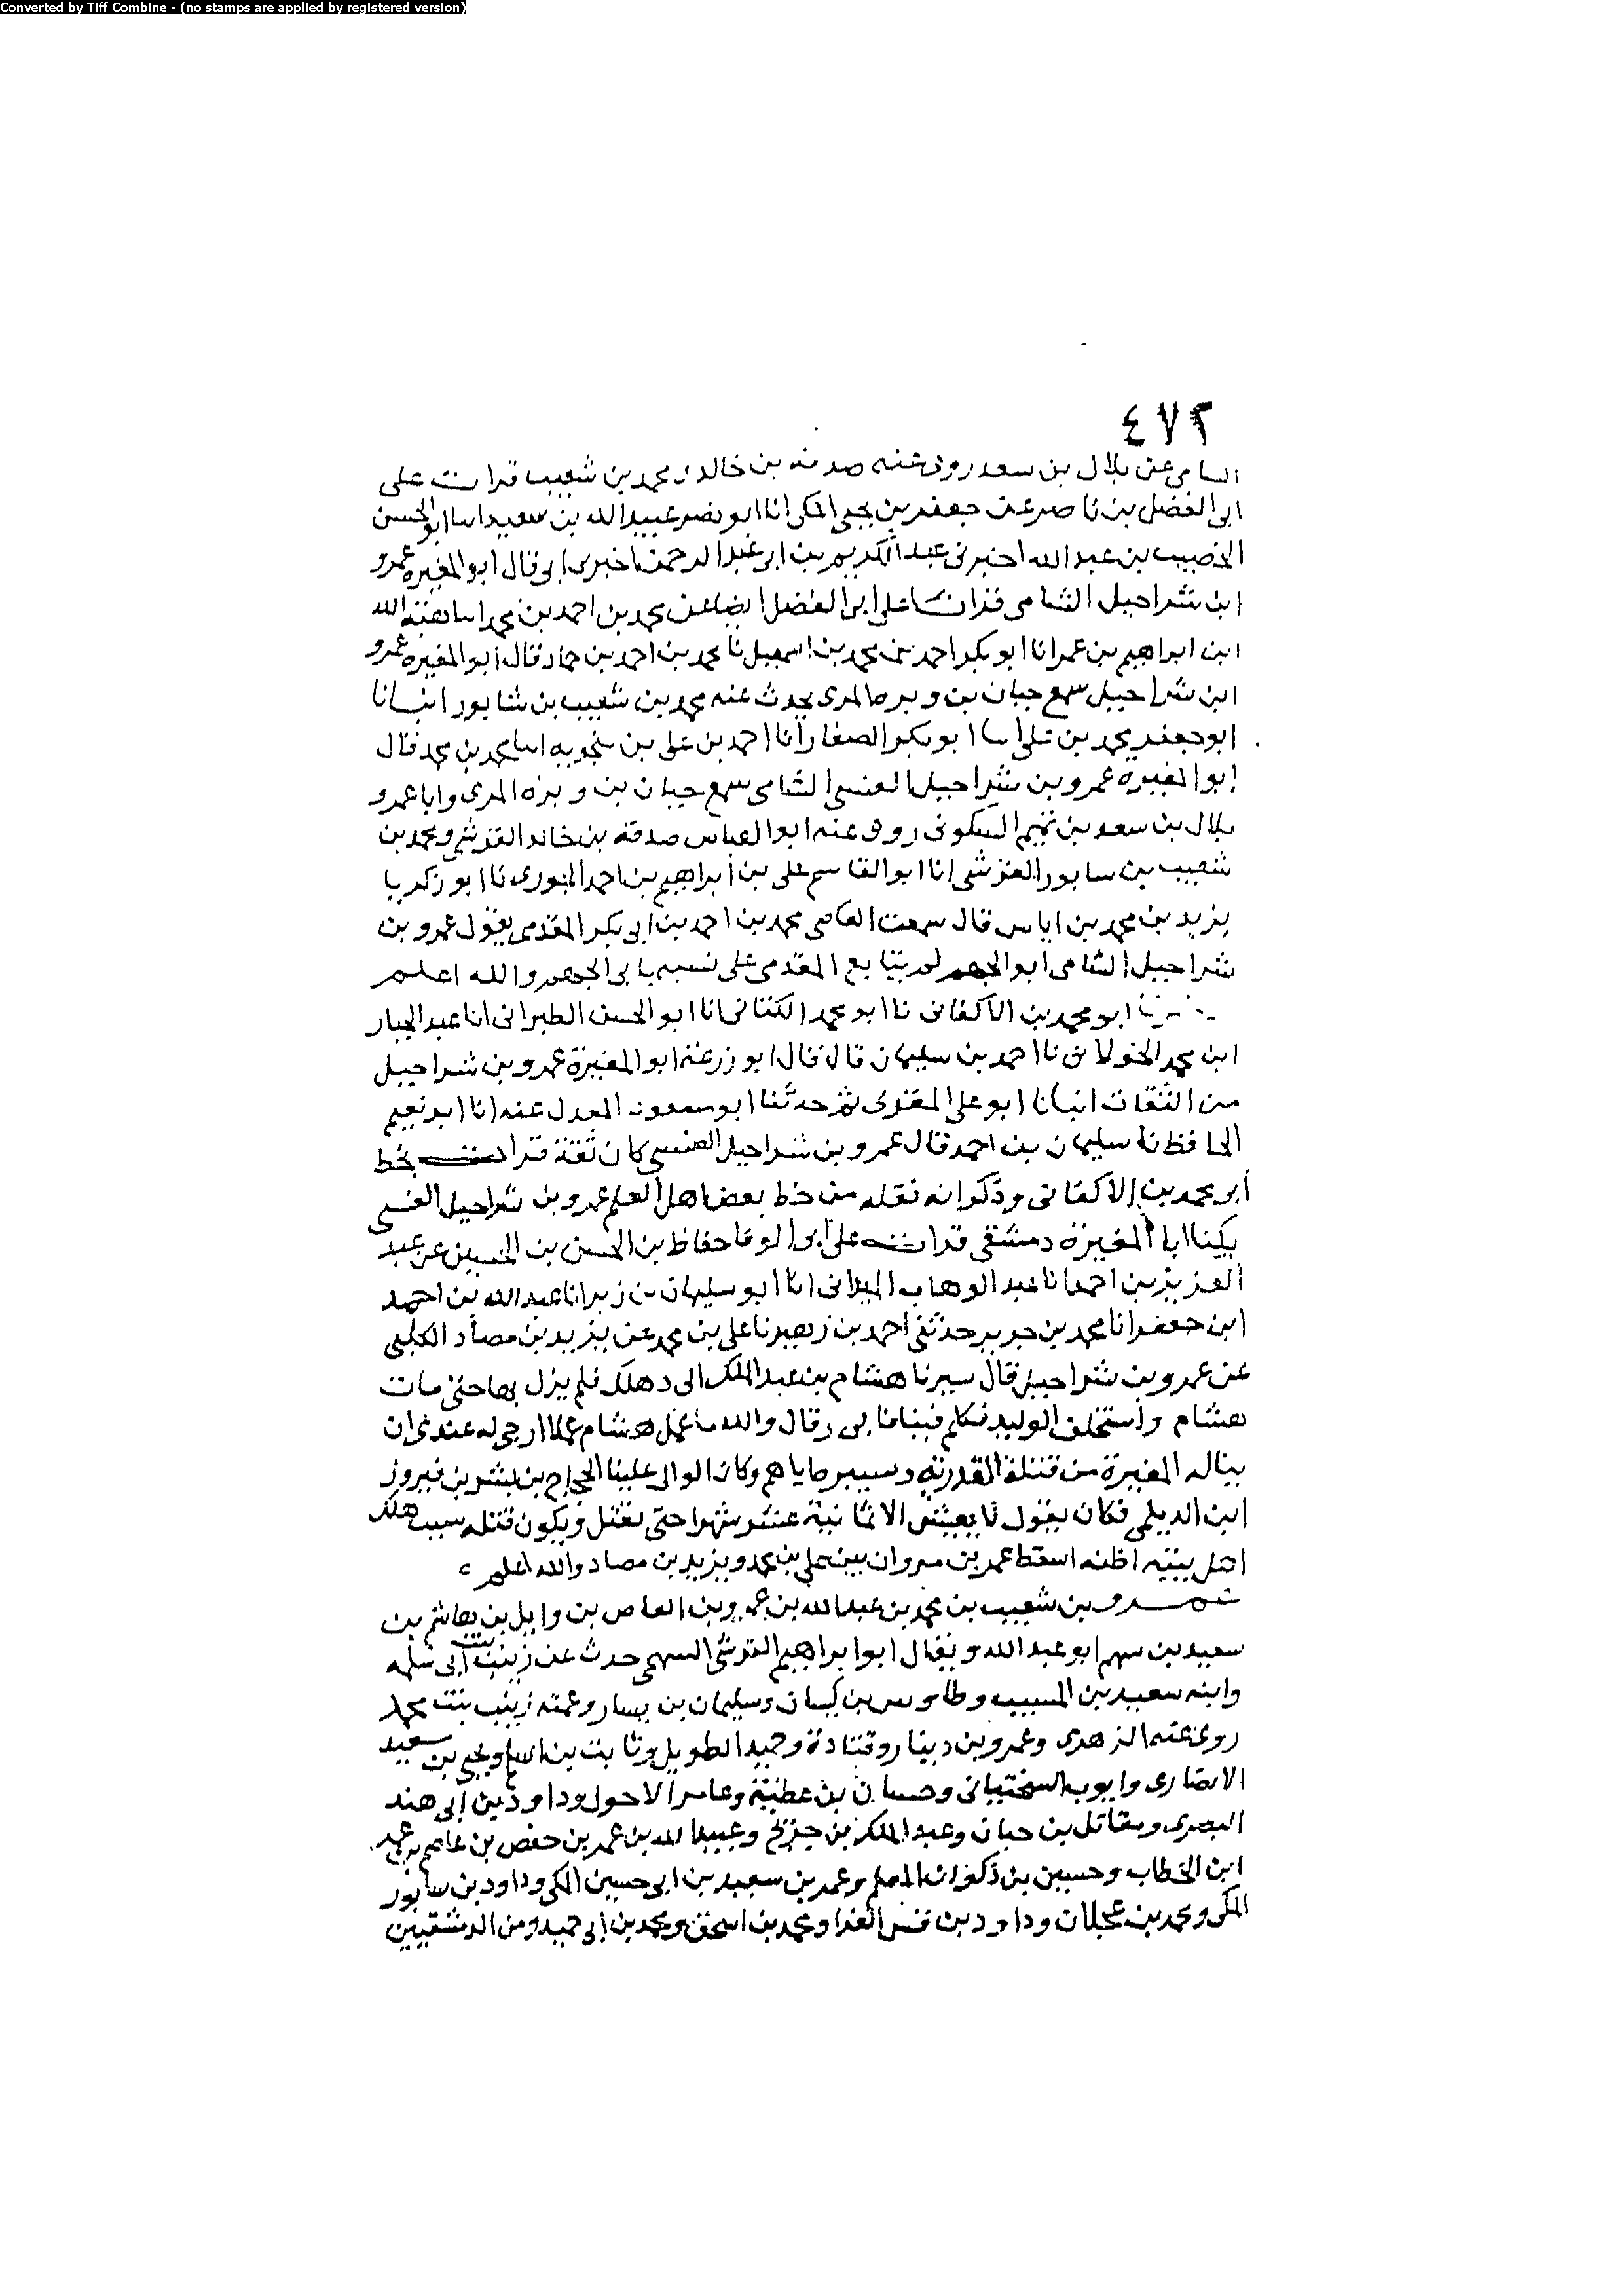 Converted by Tiff Combine - (no stamps are applied by registered version)
٤٧٢
السامى عن بلال بن سعد روى عنه صدقه بن خالد ومحمد بن شعيب قرات على
ابى الفضل بن ناصر عن جعفر بن يحيى المكى انا ابو نصر عبيد الله بن سعيد اسا ابو الحسن
الخصيب بن عبد الله اخبرنى عبد الكريم بن ابى عبد الرحمن اخبرنى ابى قال ابو المغيره عمرو
ابن شراحيل الشامى قرات على ابى الفضل ايضا عن محمد بن احمد بن محمد اسا هبة الله
ابن ابراهيم بن عمر انا ابو بكر احمد بن محمد بن اسمعيل نا محمد بن احمد بن حماد قال ابو المغيره عمرو
ابن شراحيل سمع حيان بن وبره المرى يحدث عنه محمد بن شعيب بن شابور انبانا
ابو جعفر محمد بن على اسا ابو بكر الصفار انا احمد بن على بن منجويه اسا محمد بن محمد قال
ابو المغيره عمرو بن شراحيل العنسى الشامى سمع حيان بن وبره المرى وابا عمرو
بلال بن سعد بن تميم السكونى روى عنه ابو العباس صدقة بن خالد القرشى ومحمد بن
شعيب بن سابور القرشى انا ابو القاسم على بن ابراهيم بن احمد الجورى نا ابو زكريا
يزيد بن محمد بن اياس قال سمعت القاضى محمد بن احمد بن ابى بكر المقدمى يقول عمرو بن
شراحيل الشامى ابو الجهم لم يتابع المقدمى على نسبه بابى الجهم والله اعلم
ابو محمد بن الاكفانى نا ابو محمد الكتانى انا ابو الحسن الطبرانى انا عبد الجبار
ابن محمد الخولانى نا احمد بن سليمان قال قال ابو زرعة ابو المغيرة عمرو بن شراحيل
من الثقات انبانا ابو على المقرى ثم حدثنا ابو مسعود المعدل عنه انا ابو نعيم
الحافظ نا سليمان بن احمد قال عمرو بن شراحيل العنسى كان ثقة قرات بخط
ابو محمد بن الاكفانى وذكر انه نقله من خط بعض اهل العلم عمرو بن شراحيل العنسى
يكنا ابا المغيرة دمشقى قرات على ابو الوفا حفاظ بن الحسن بن الحسين عن عبد
العزيز بن احمد انا عبد الوهاب الميدانى انا ابو سليمان بن زبر انا عبد الله بن احمد
ابن جعفر انا محمد بن جرير حدثنى احمد بن زهير نا على بن محمد عن يزيد بن مصاد الكلبى
عن عمرو بن شراحيل قال سيرنا هشام بن عبد الملك الى دهلك فلم يزل بها حتى مات
هشام واستخلف الوليد فكلم فينا فابى وقال والله ما عمل هشام عملا ارجى له عندى ان
يناله المغيرة من قتلة القدرية وسيير ماياهم وكان الوالى علينا الحجاج بن بشر بن فيروز
ابن الديلمى فكان يقول لا يعيش الا ثمانية عشر شهرا حتى يقتل ويكون قتله سبب هلك
اهل بيته اظنه اسقط عمر بن مروان بين على بن محمد ويزيد بن مصاد والله اعلم
عمرو بن شعيب بن محمد بن عبد الله بن عمرو بن العاص بن وايل بن هاشم بن
سعيد بن سهم ابو عبد الله ويقال ابو ابراهيم القرشى السهمى حدث عن زينب بنت ابى سلمه
وابنه سعيد بن المسيب وطاوس بن كيسان وسليمان بن يسار وعمته زينب بنت محمد
روى عنه الزهرى وعمرو بن دينار وقتادة وحميد الطويل وثابت بن اسلم ويحيى بن سعيد
الانصارى وايوب السختيانى وحسان بن عطية وعامر الاحول وداود بن ابى هند
البصرى ومقاتل بن حيان وعبد الملك بن جريج وعبيد الله بن عمر بن حفص بن عاصم بن عمر
ابن الخطاب وحسين بن ذكوان المعلم وعمر بن سعيد بن ابى حسين المكى وداود بن سابور
المكى ومحمد بن عجلان وداود بن قيس الفرا ومحمد بن اسحق ومحمد بن ابى حميد ومن الدمشقيين